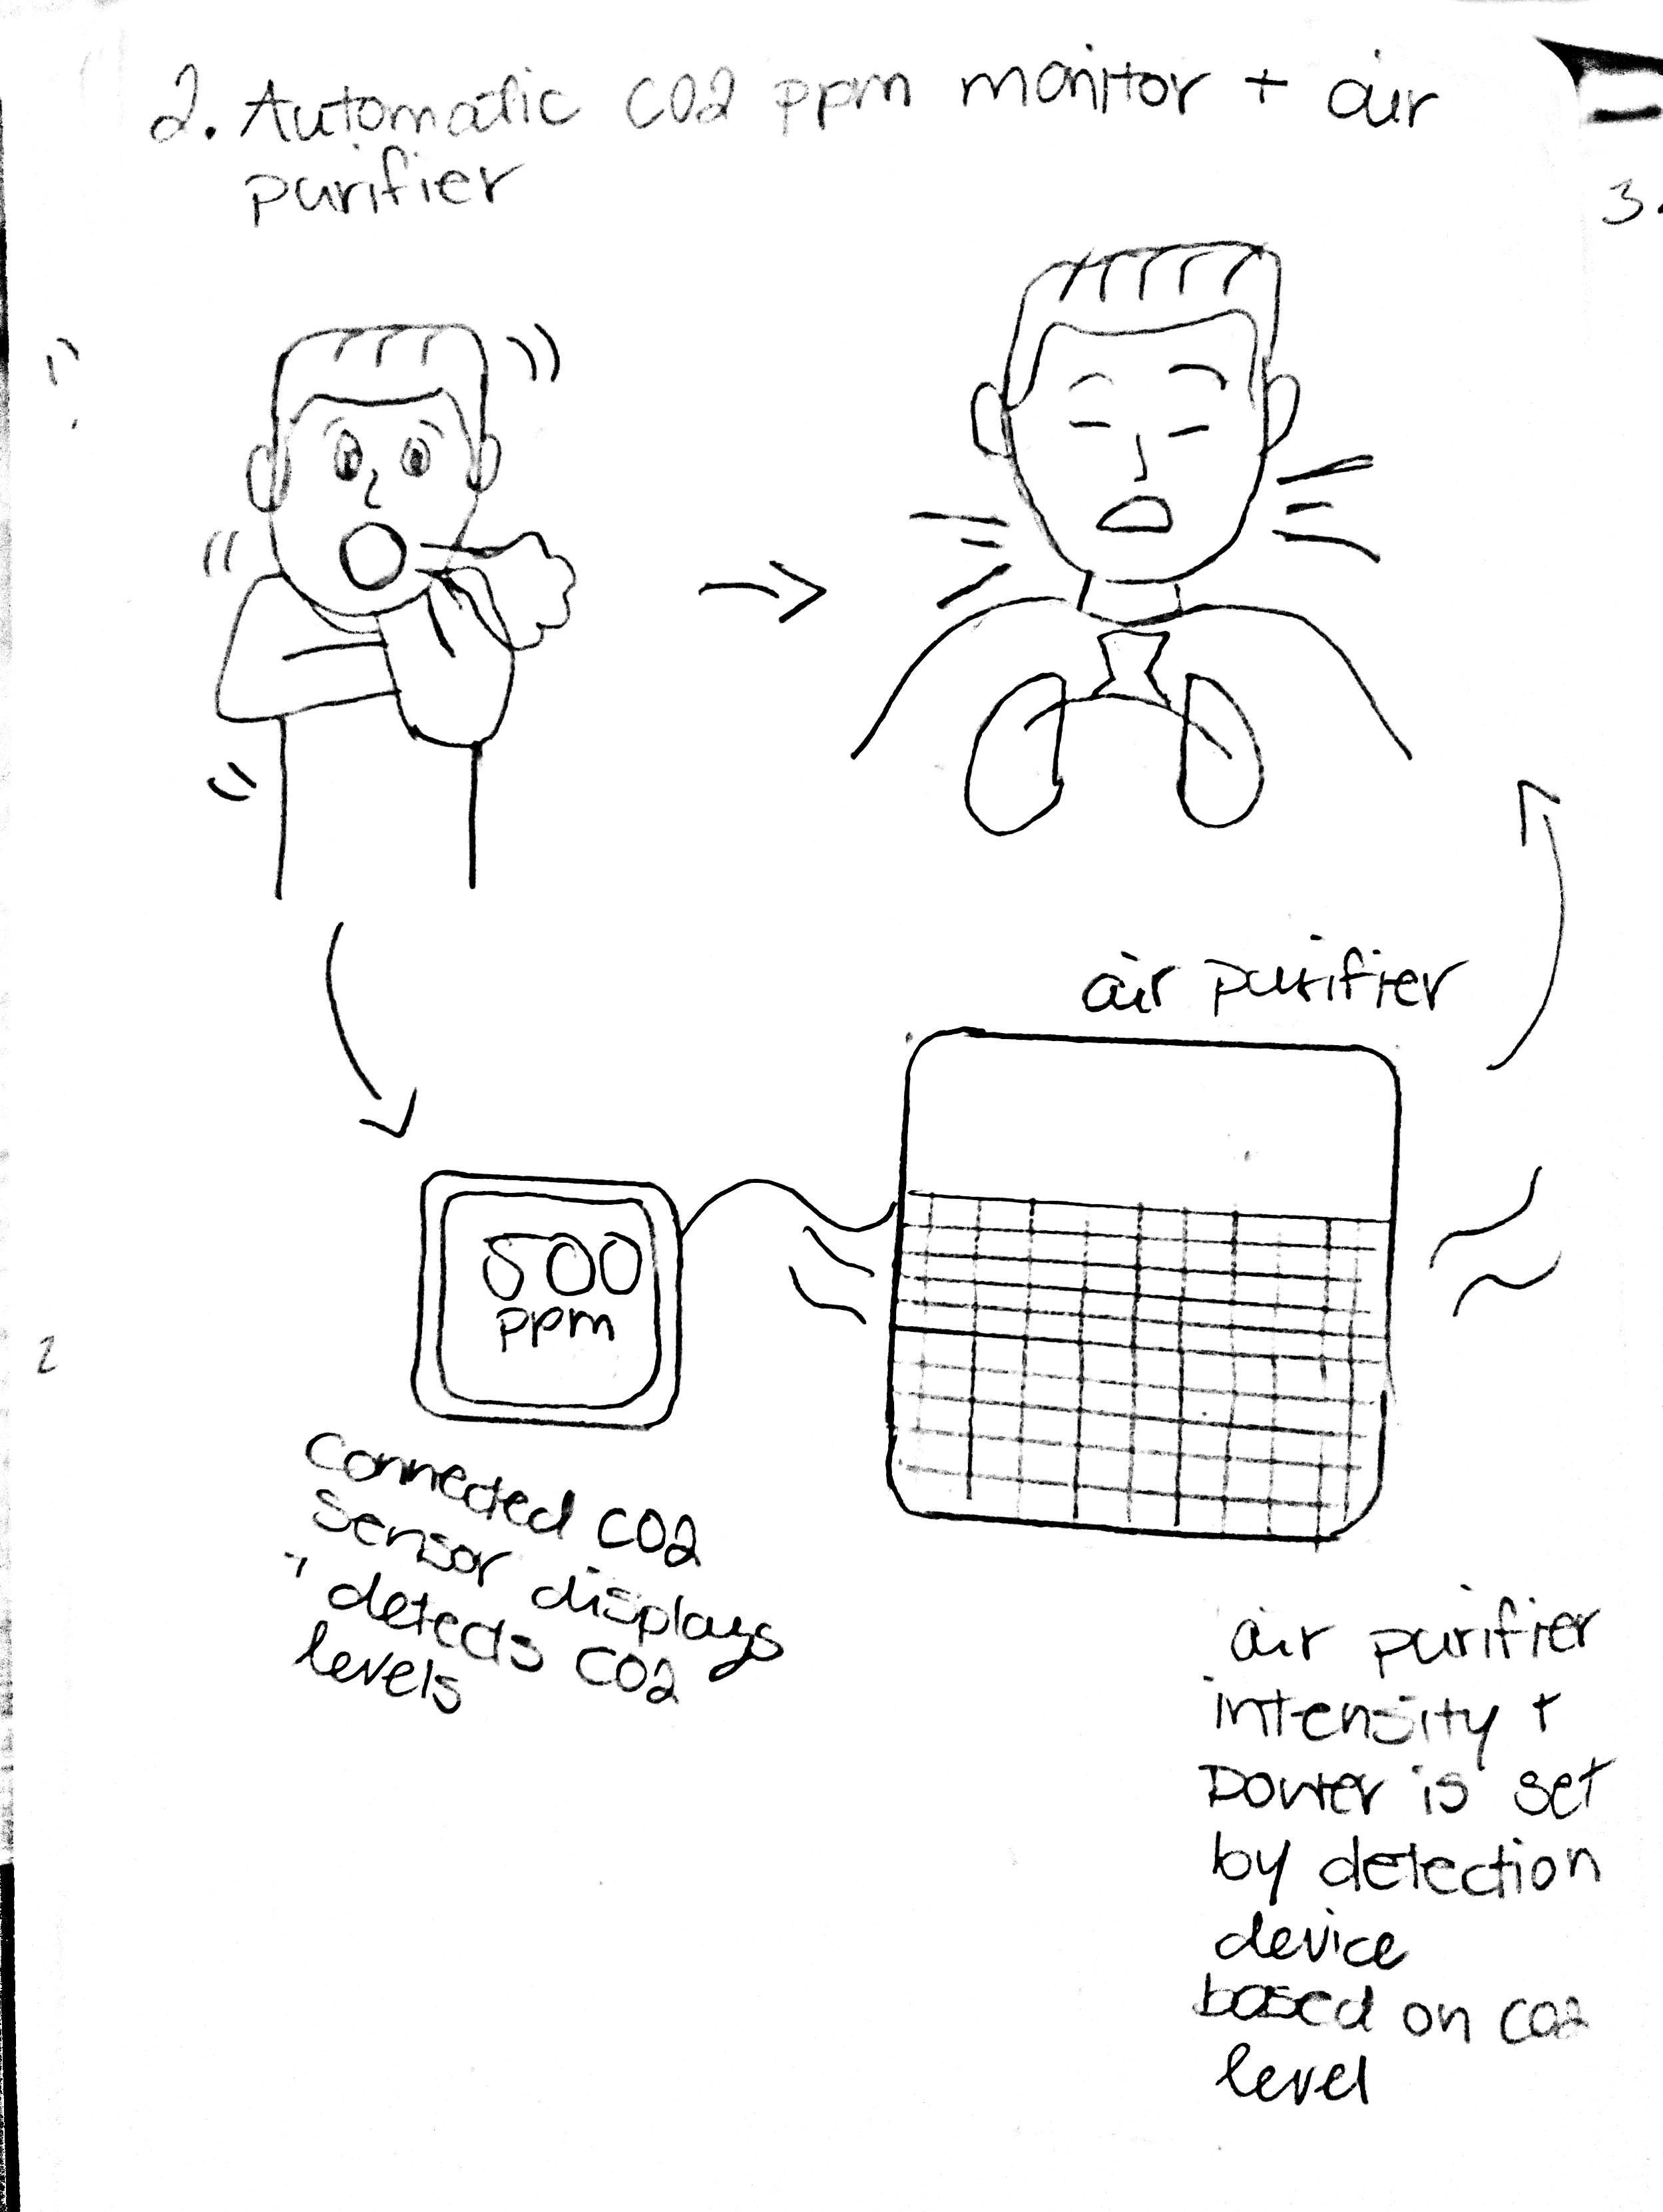 2. Automatic CO2 ppm monitor + air
purifier
3.
air purifier
500
ppm
2
Connected CO2
sensor displays
detects CO2
levels
air purifier
intensity +
Power is set
by detection
device
based on CO2
level